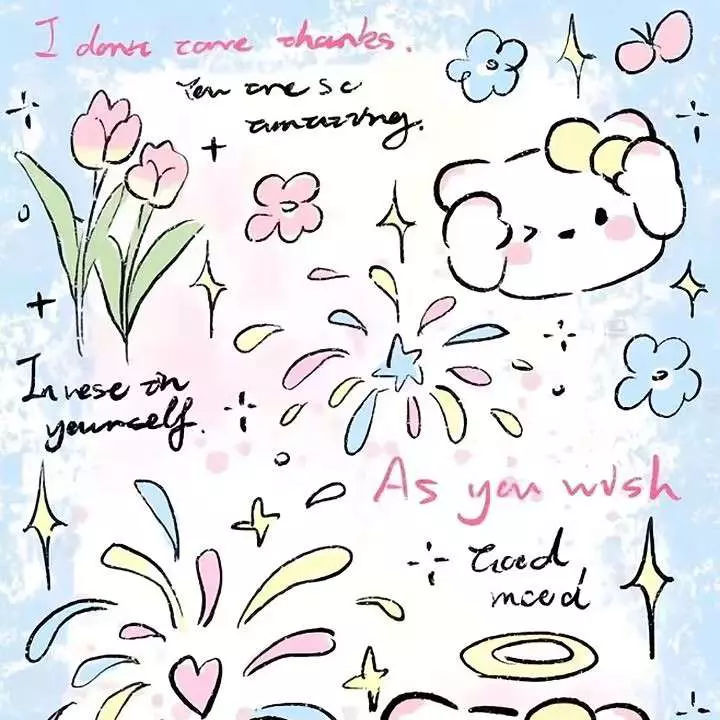 I dont care thanks.
You are so
amazing.
Invest in
yourself.
As you wish
Good
mood